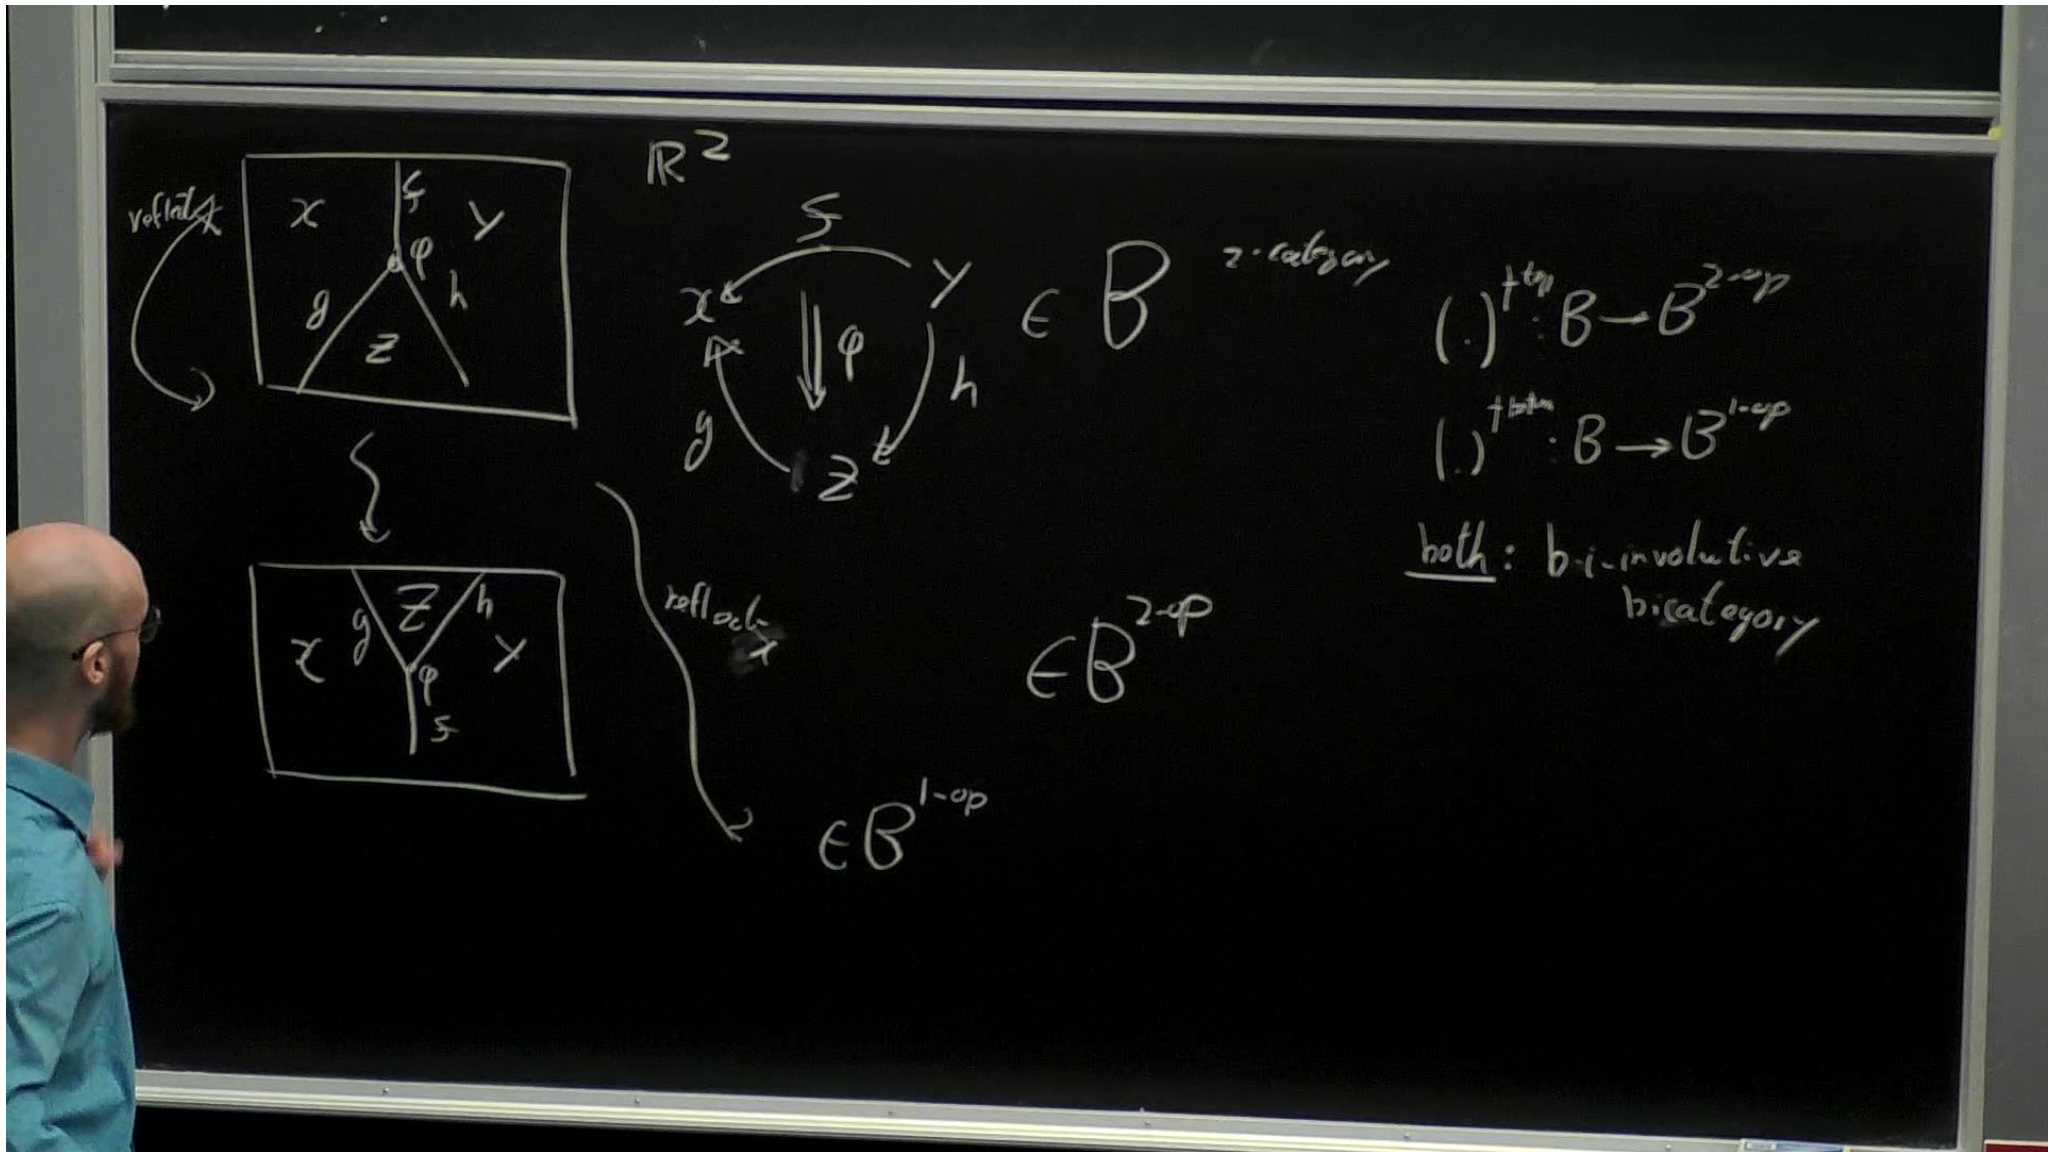 ℝ²
x f y
φ
g h
z
f
x y ∈ B 2-category
φ
g h
z
(·)^{† top} : B → B^{2-op}
(·)^{† bottom} : B → B^{1-op}
both: bi-involutive
bicategory
g z h
x y
φ
f
reflect
∈ B^{2-op}
∈ B^{1-op}